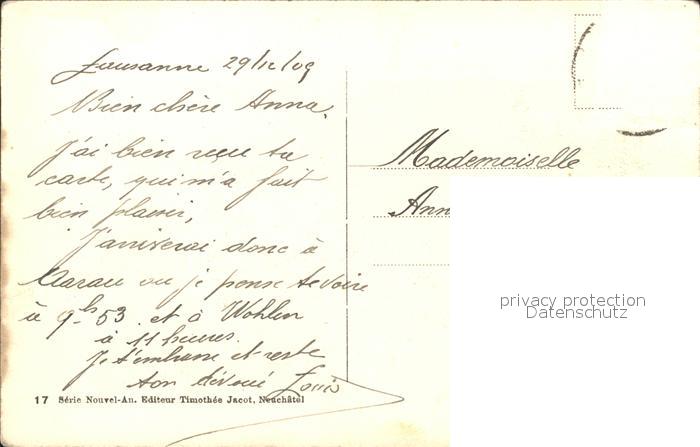 Lausanne 29/12/09
Bien chère Anna,
J'ai bien reçu ta
carte, qui m'a fait
bien plaisir,
J'arriverai donc à
Aarau ou je pense te voire
à 9 hs 53. et à Wohlen
à 11 heures.
Je t'embrasse et reste
ton dévoué Louis
17 Série Nouvel-An. Editeur Timothée Jacot, Neuchâtel
Mademoiselle
Ann
privacy protection
Datenschutz